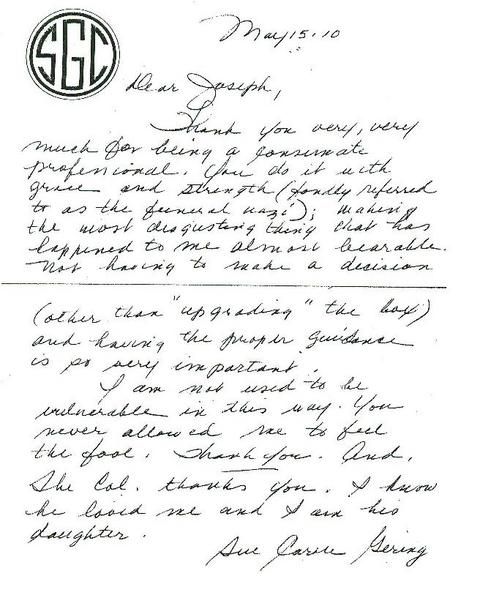 SGC
May 15·10
Dear Joseph,
Thank you very, very
much for being a consumate
professional. You do it with
grace and strength (fondly referred
to as the funeral nazi); making
the most disgusting thing that has
happened to me almost bearable.
Not having to make a decision
(other than "upgrading" the box)
and having the proper guidance
is so very important.
I am not used to be
vulnerable in this way. You
never allowed me to feel
the fool. Thank you. And,
The Col. thanks you. I know
he loved me and I am his
daughter.
Sue Gering